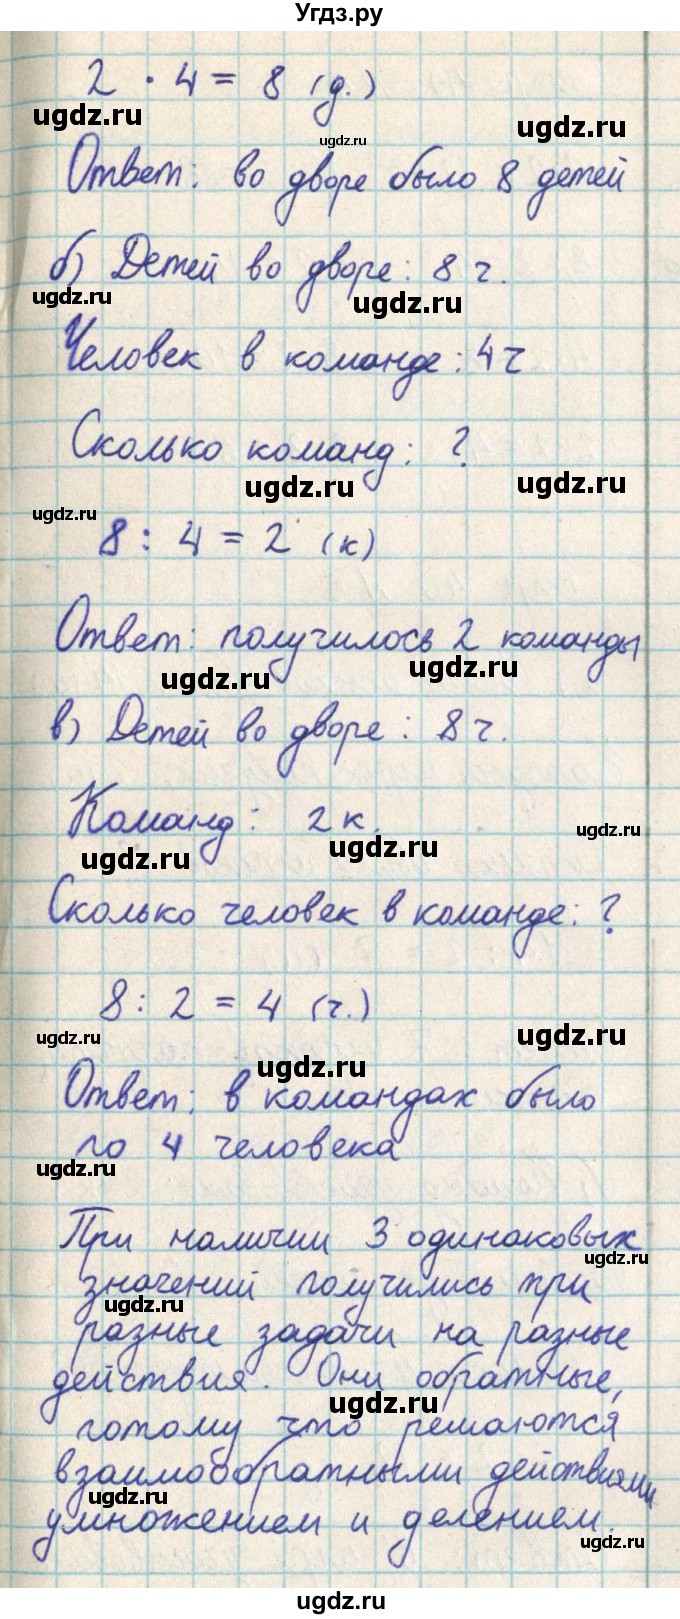 Угдз.ру
2 · 4 = 8 (д.)
ugdz.ru
ugdz.ru
ugdz.ru
Ответ: во дворе было 8 детей
б) Детей во дворе: 8 ч.
ugdz.ru
ugdz.ru
Человек в команде: 4 ч
Сколько команд: ?
ugdz.ru
ugdz.ru
ugdz.ru
8 : 4 = 2 (к)
Ответ: получилось 2 команды
ugdz.ru
ugdz.ru
в) Детей во дворе: 8 ч.
Команд: 2 к.
ugdz.ru
ugdz.ru
ugdz.ru
Сколько человек в команде: ?
8 : 2 = 4 (ч.)
ugdz.ru
ugdz.ru
ugdz.ru
Ответ: в командах было
по 4 человека
ugdz.ru
При наличии 3 одинаковых
ugdz.ru
значений получились три
ugdz.ru
разные задачи на разные
действия. Они обратные,
ugdz.ru
потому что решаются
взаимообратными действиями
ugdz.ru
умножением и делением.
ugdz.ru
ugdz.ru